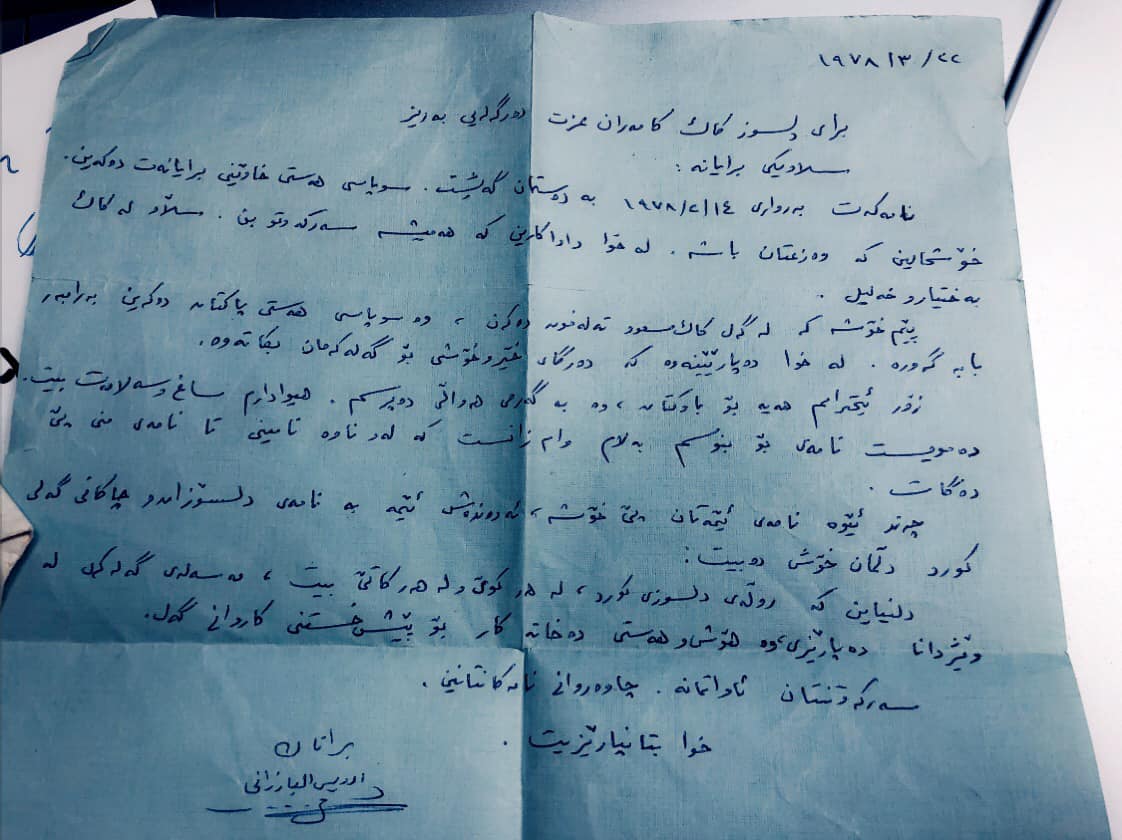 ١٩٧٨/٣/٢٢
برای دلسوز کاك کامەران عزت دەرگەلەیی بەڕێز
سلاویکی برایانە :
نامەکەت بەرواری ١٩٧٨/٢/١٤ بە دەستمان گەیشت. سوپاسی هەستی خاوێنی برایانەت دەکەین.
خۆشحالین کە وەزعتان باشە. لە خوا داواکارین کە هەمیشە سەرکەوتو بن. سلاو لە کاك
بەختیارو خەلیل .
پێم خۆشە کە لەگەل کاك مسعود تەلەفون دەکەن ، وە سوپاسی هەستی پاکتان دەکەین بەرامبەر
بابە گەورە. لە خوا دەپارێینەوە کە دەرگای خێرو خۆشی بۆ گەلەکەمان بکاتەوە.
زۆر ئیحترامم هەیە بۆ باوکتان ، وە بە گەرمی هەواڵی دەپرسم. هیوادارم ساغ و سەلامەت بیت.
دەمویست نامەی بۆ بنوسم بەلام وام زانست کە لەو ناوە نامینی تا نامەی منی پێ
دەگات .
چەند ئێوە نامەی ئێمەتان پێ خۆشە ، ئەوەندەش ئێمە بە نامەی دلسۆزانو چاکانی گەلی
کورد دڵمان خۆش دەبیت :
دلنیاین کە رۆڵەی دلسوزی کورد ، لە هەر کوێ و لە هەر کاتێ بیت ، مەسەلەی گەلەکەی لە
وێژدانا دەپارێزی وە هۆش و هەستی دەخاتە کار بۆ پێشخستنی کاروانی گەل.
سەرکەوتنتان ئاواتمانە. چاوەروانی نامەکانتانین .
خوا بتانپارێزیت .
براتان
ادریس البارزانی